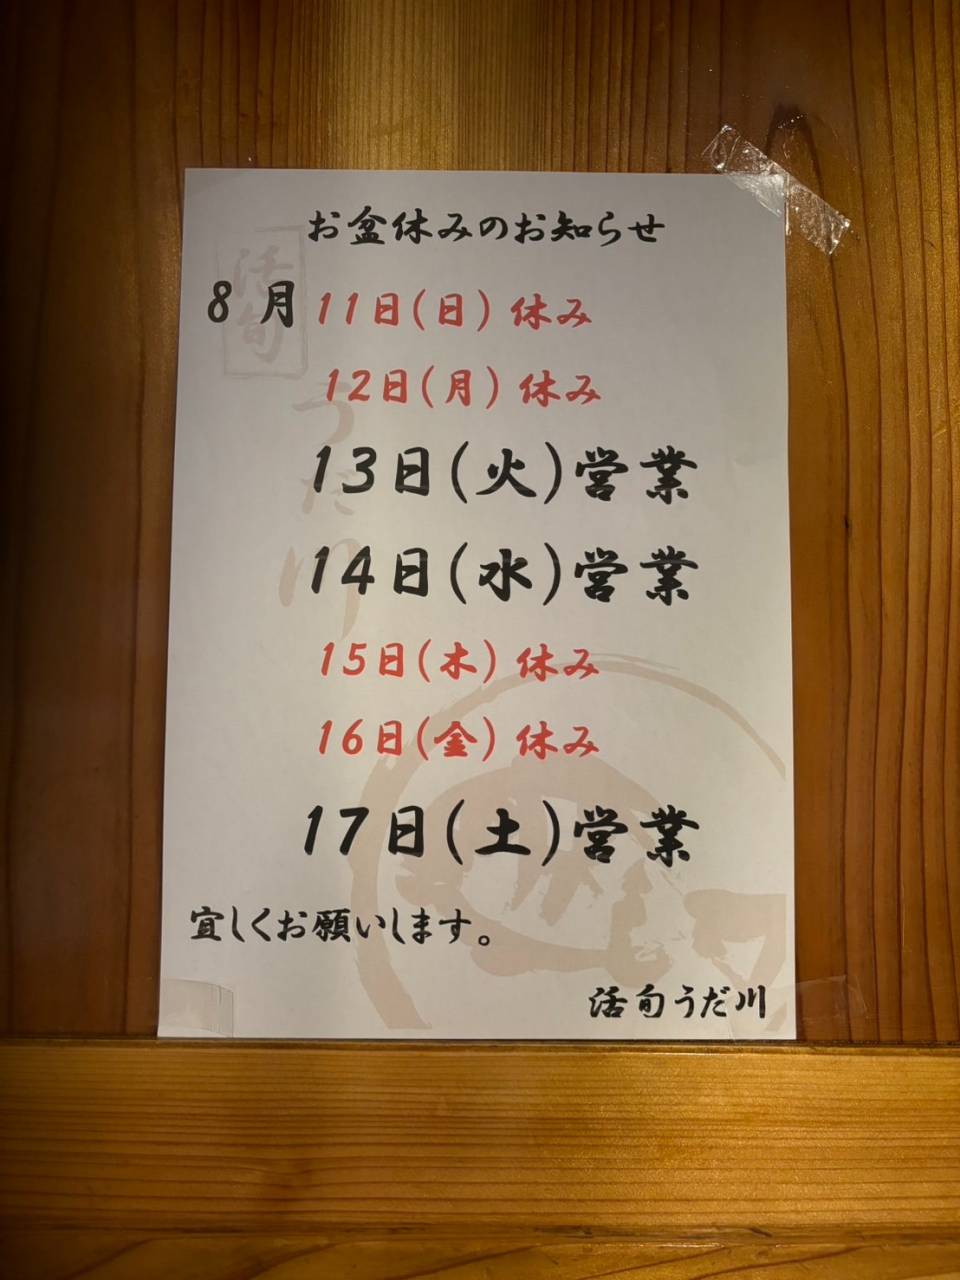 お盆休みのお知らせ
8月11日(日)休み
12日(月)休み
13日(火)営業
14日(水)営業
15日(木)休み
16日(金)休み
17日(土)営業
宜しくお願いします。
活旬うだ川
活旬
うだ川